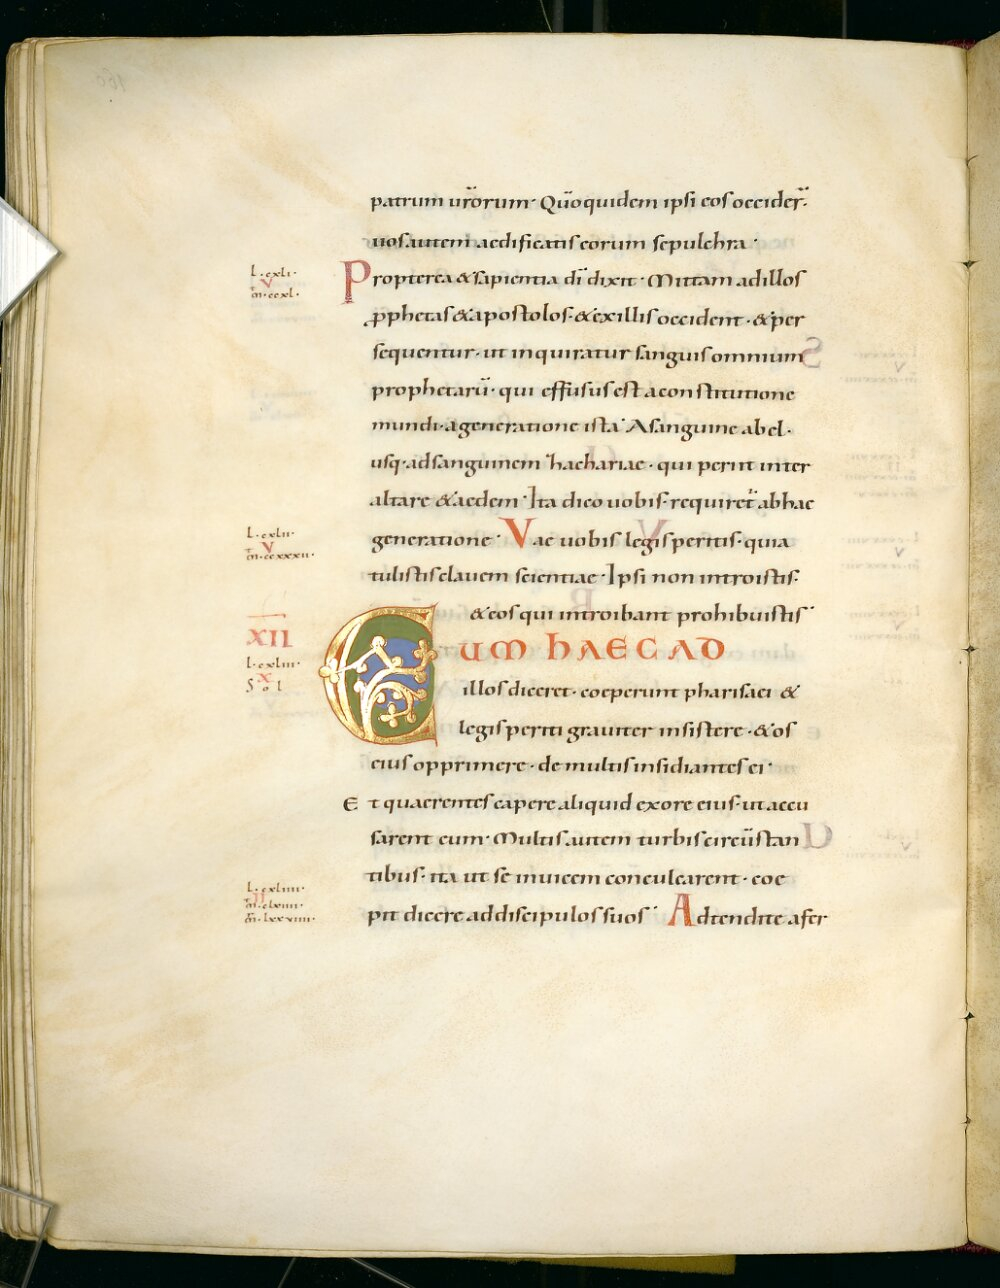 patrum ur̄orum· Qūo quidem ipsi eos occider̄·
uos autem aedificatis eorum sepulchra·
L·cxli·
V
m̄·ccxl·
Propterea & sapientia dī dixit· Mittam ad illos
p̱phetas & apostolos· & ex illis occident· & per
sequentur· ut inquiratur sanguis omnium
prophetarū· qui effusus est a constitutione
mundi· a generatione ista· A sanguine abel·
usq· ad sanguinem hachariae· qui periit inter
altare & aedem· Ita dico uobis· requiret̄ ab hac
L·cxlii·
V
m̄·ccxxxii·
generatione· Vae uobis legis peritis· quia
tulistis clauem scientiae· Ipsi non introistis·
& eos qui introibant prohibuistis·
XII
CUM HAEC AD
L·cxliii·
X
Sol
illos diceret· coeperunt pharisaei &
legis periti grauiter insistere· & os
eius opprimere· de multis insidiantes ei·
Et quaerentes capere aliquid ex ore eius· ut accu
sarent eum· Multis autem turbis circūstan
tibus· ita ut se inuicem conculcarent· coe
L·cxliiii·
II
m̄·clxiiii·
m̄·lxxviiii·
pit dicere ad discipulos suos· Adtendite a fer